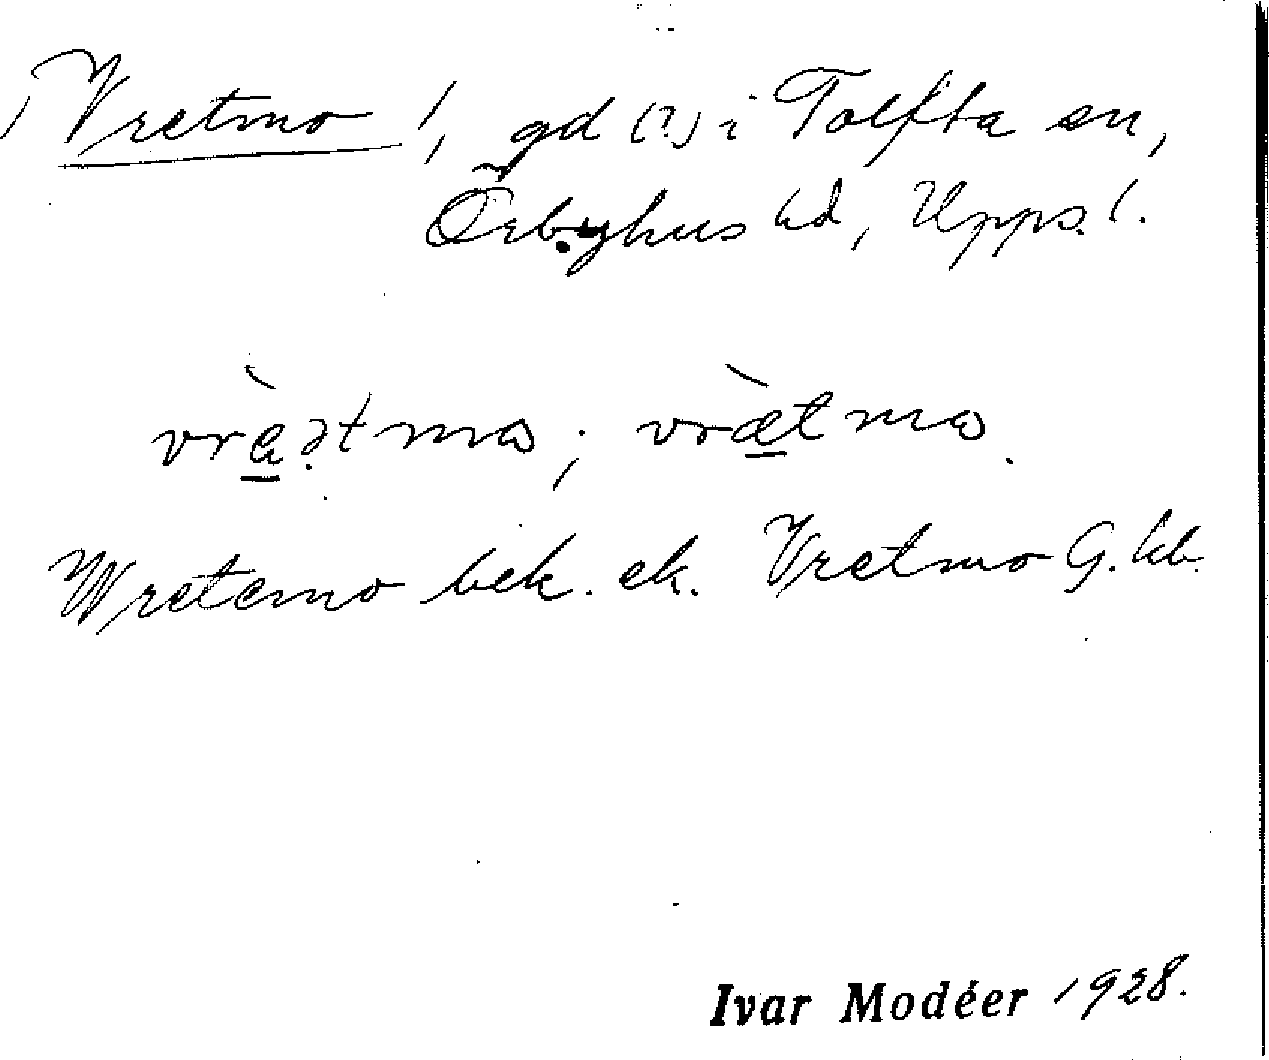 Vretmo /, gd (?) i Tolfta sn,
Örbyhus hd, Upps. l.
vràətmω; vræ̀tmω.
Wretemo bek. ek. Vretmo G. kb.
Ivar Modéer 1928.